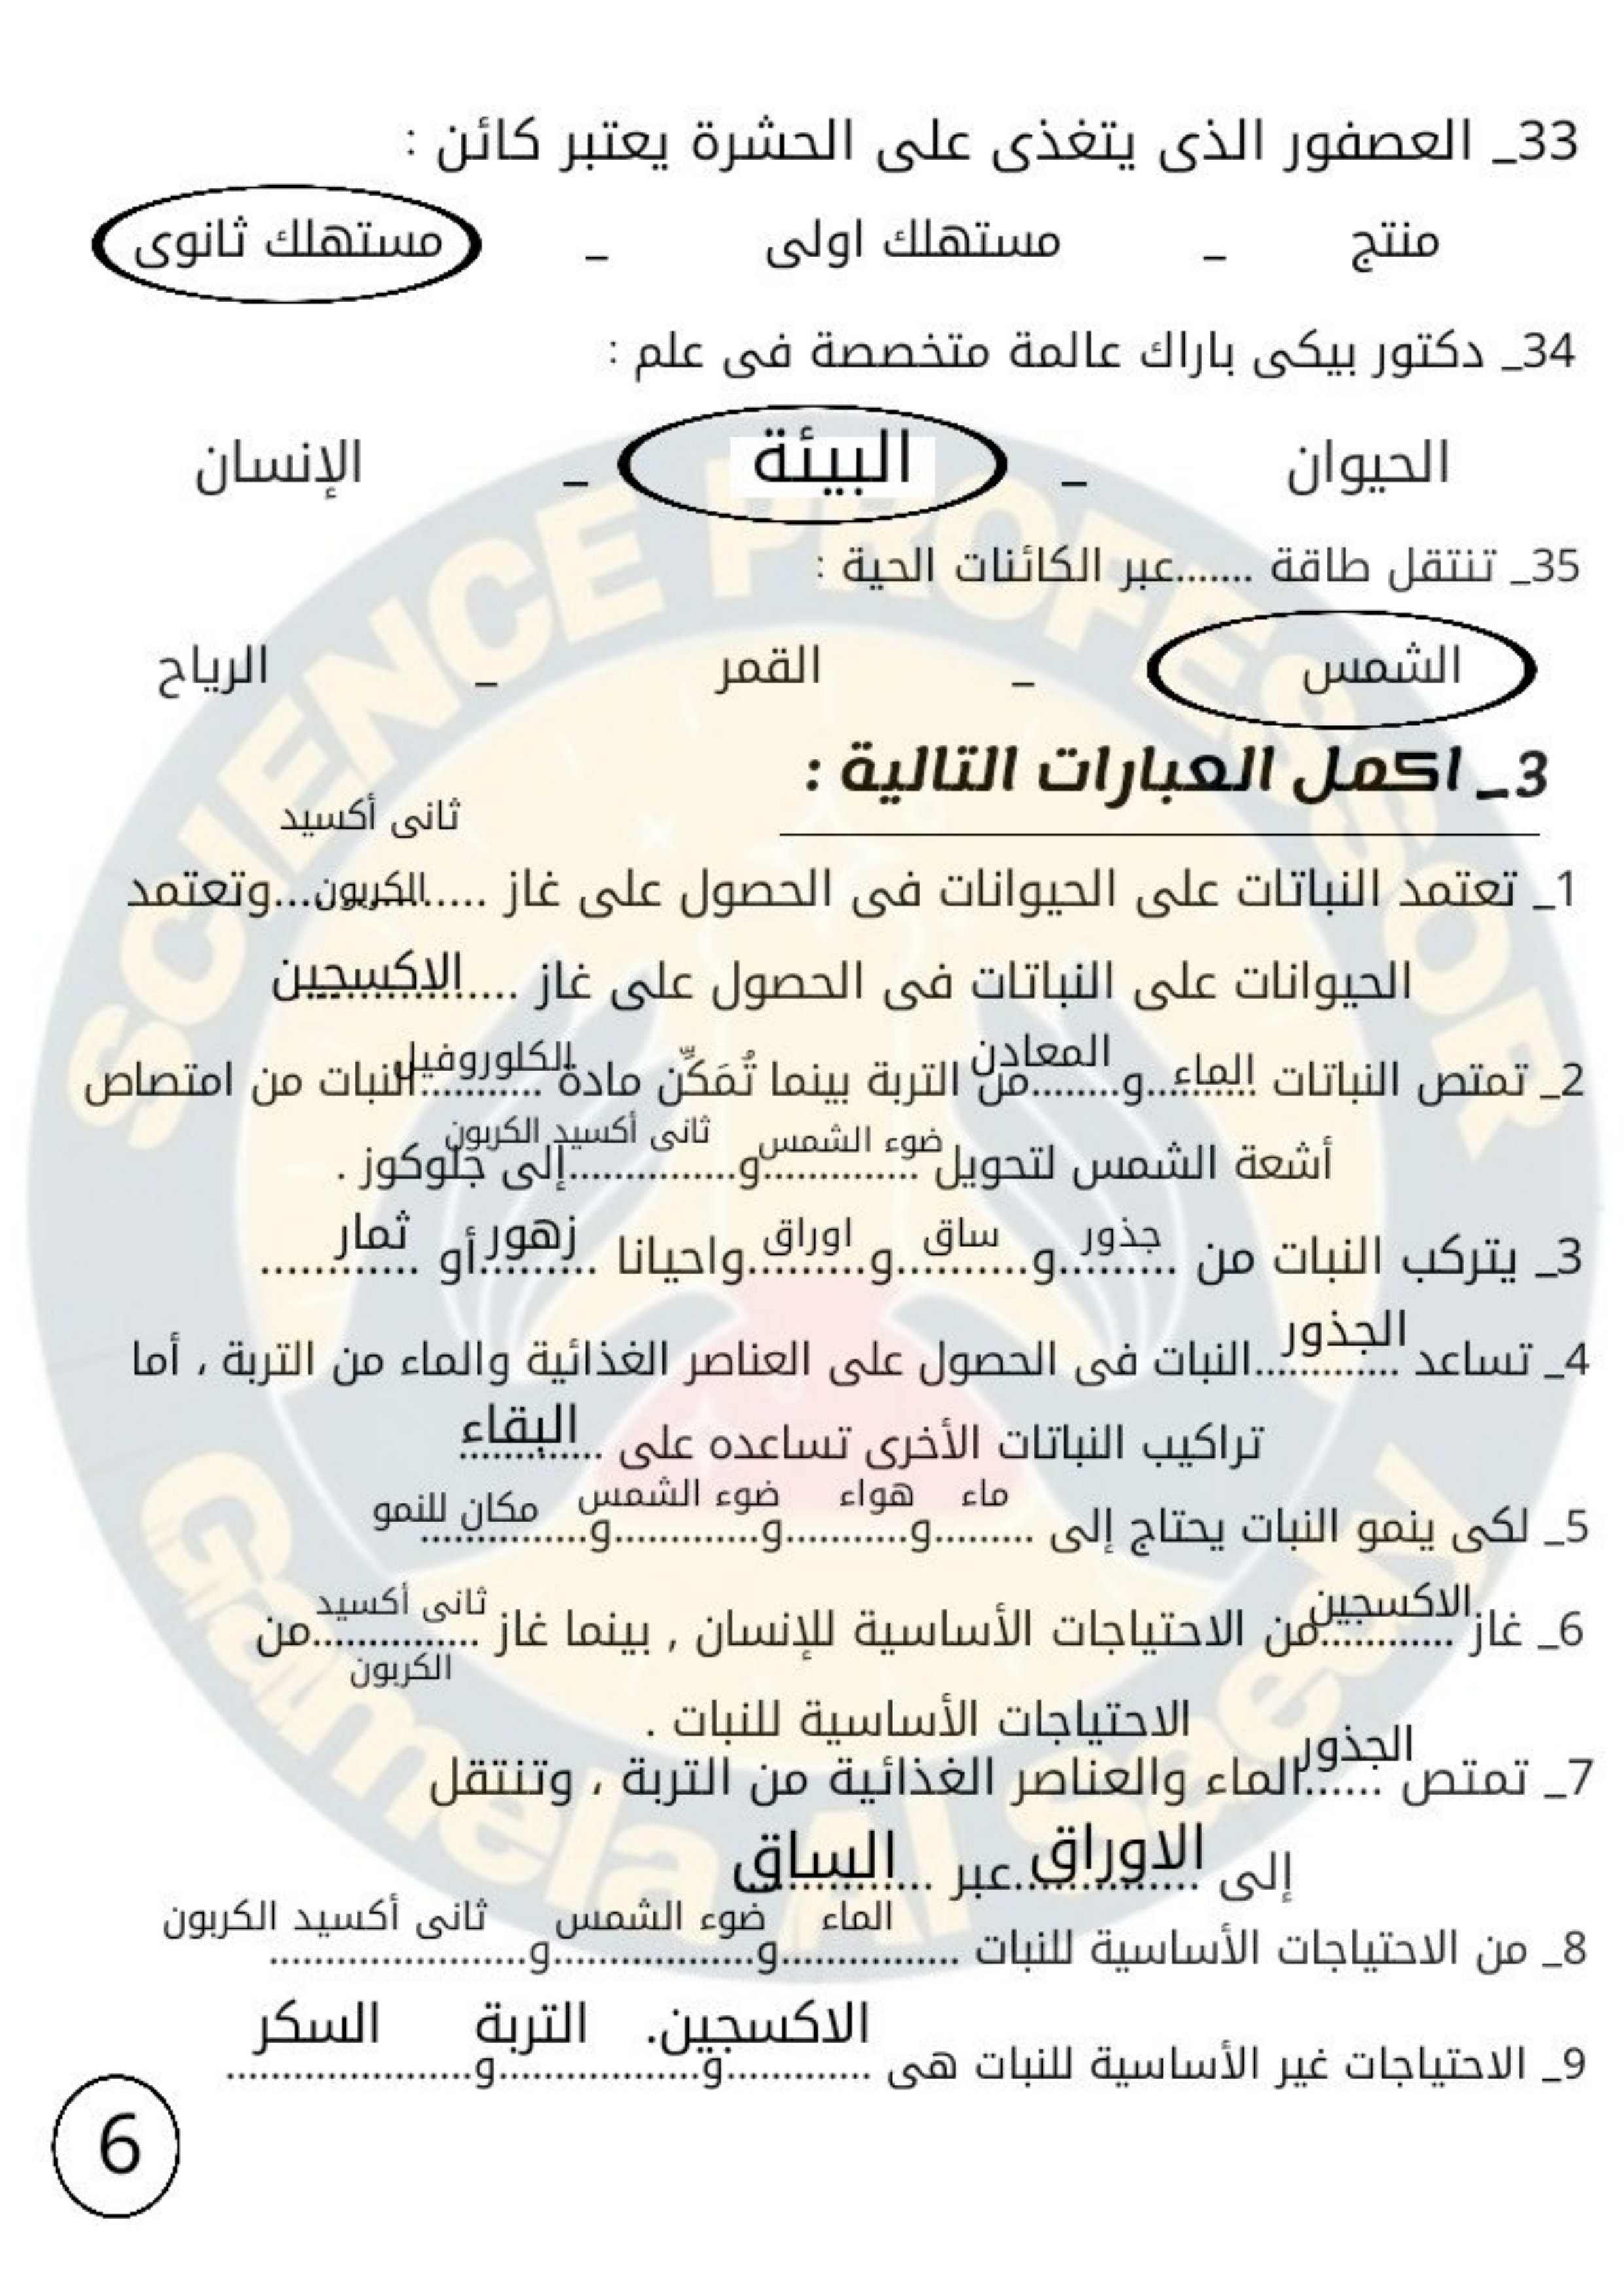 33_ العصفور الذى يتغذى على الحشرة يعتبر كائن :
منتج _ مستهلك اولى _ مستهلك ثانوى
34_ دكتور بيكى باراك عالمة متخصصة فى علم :
الحيوان _ البيئة _ الإنسان
35_ تنتقل طاقة .......عبر الكائنات الحية :
الشمس _ القمر _ الرياح
3_ اكمل العبارات التالية :
ثانى أكسيد
1_ تعتمد النباتات على الحيوانات فى الحصول على غاز .....الكربون...وتعتمد
الحيوانات على النباتات فى الحصول على غاز ....الاكسجين
2_ تمتص النباتات الماء..و....المعادن....من التربة بينما تُمَكِّن مادة الكلوروفيل النبات من امتصاص
أشعة الشمس لتحويل ضوء الشمس و ثانى أكسيد الكربون إلى جلوكوز .
3_ يتركب النبات من جذور و ساق و اوراق واحيانا زهور أو ثمار
4_ تساعد الجذور النبات فى الحصول على العناصر الغذائية والماء من التربة ، أما
تراكيب النباتات الأخرى تساعده على البقاء
5_ لكى ينمو النبات يحتاج إلى ماء و هواء و ضوء الشمس و مكان للنمو
6_ غاز الاكسجين من الاحتياجات الأساسية للإنسان , بينما غاز ثانى أكسيد من
الكربون
الاحتياجات الأساسية للنبات .
7_ تمتص الجذور الماء والعناصر الغذائية من التربة ، وتنتقل
إلى الاوراق عبر الساق
8_ من الاحتياجات الأساسية للنبات الماء و ضوء الشمس و ثانى أكسيد الكربون
9_ الاحتياجات غير الأساسية للنبات هى الاكسجين. و التربة و السكر
6
SCIENCE PROFESSOR
Gamela Al Saedy